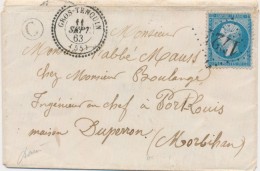 GROS-TENQUIN
11
SEPT
63
(55)
C
Monsieur
Monsieur l'abbé Mauss
chez Monsieur Boulangé
Ingénieur en chef à Port Louis
maison Duperron (Morbihan)